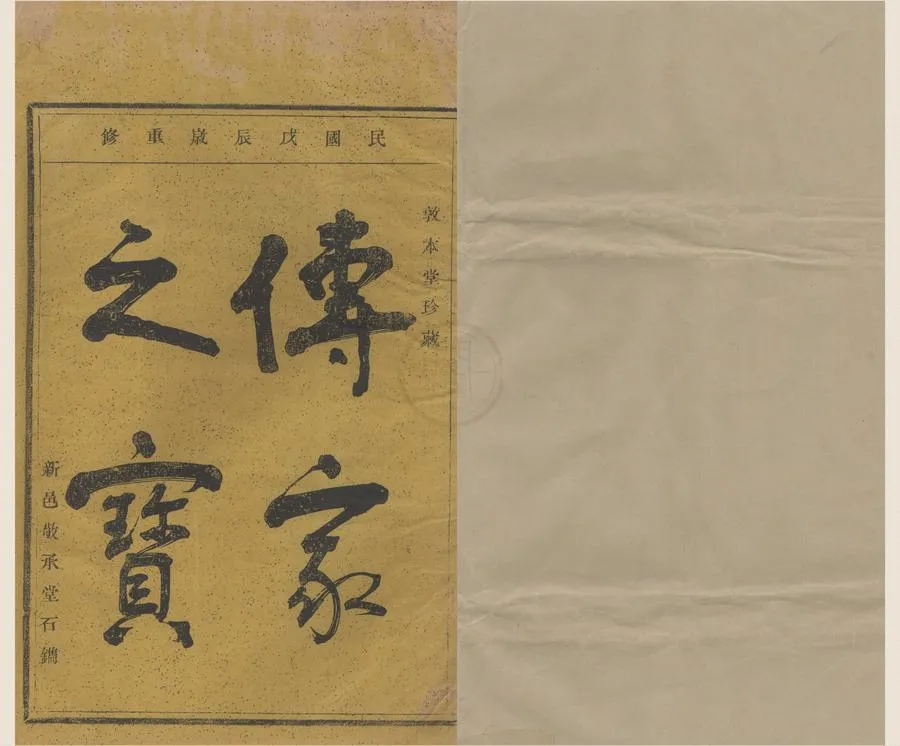 民國戊辰歲重修
敦本堂珍藏
傳家
之寶
新邑敬承堂石鐫